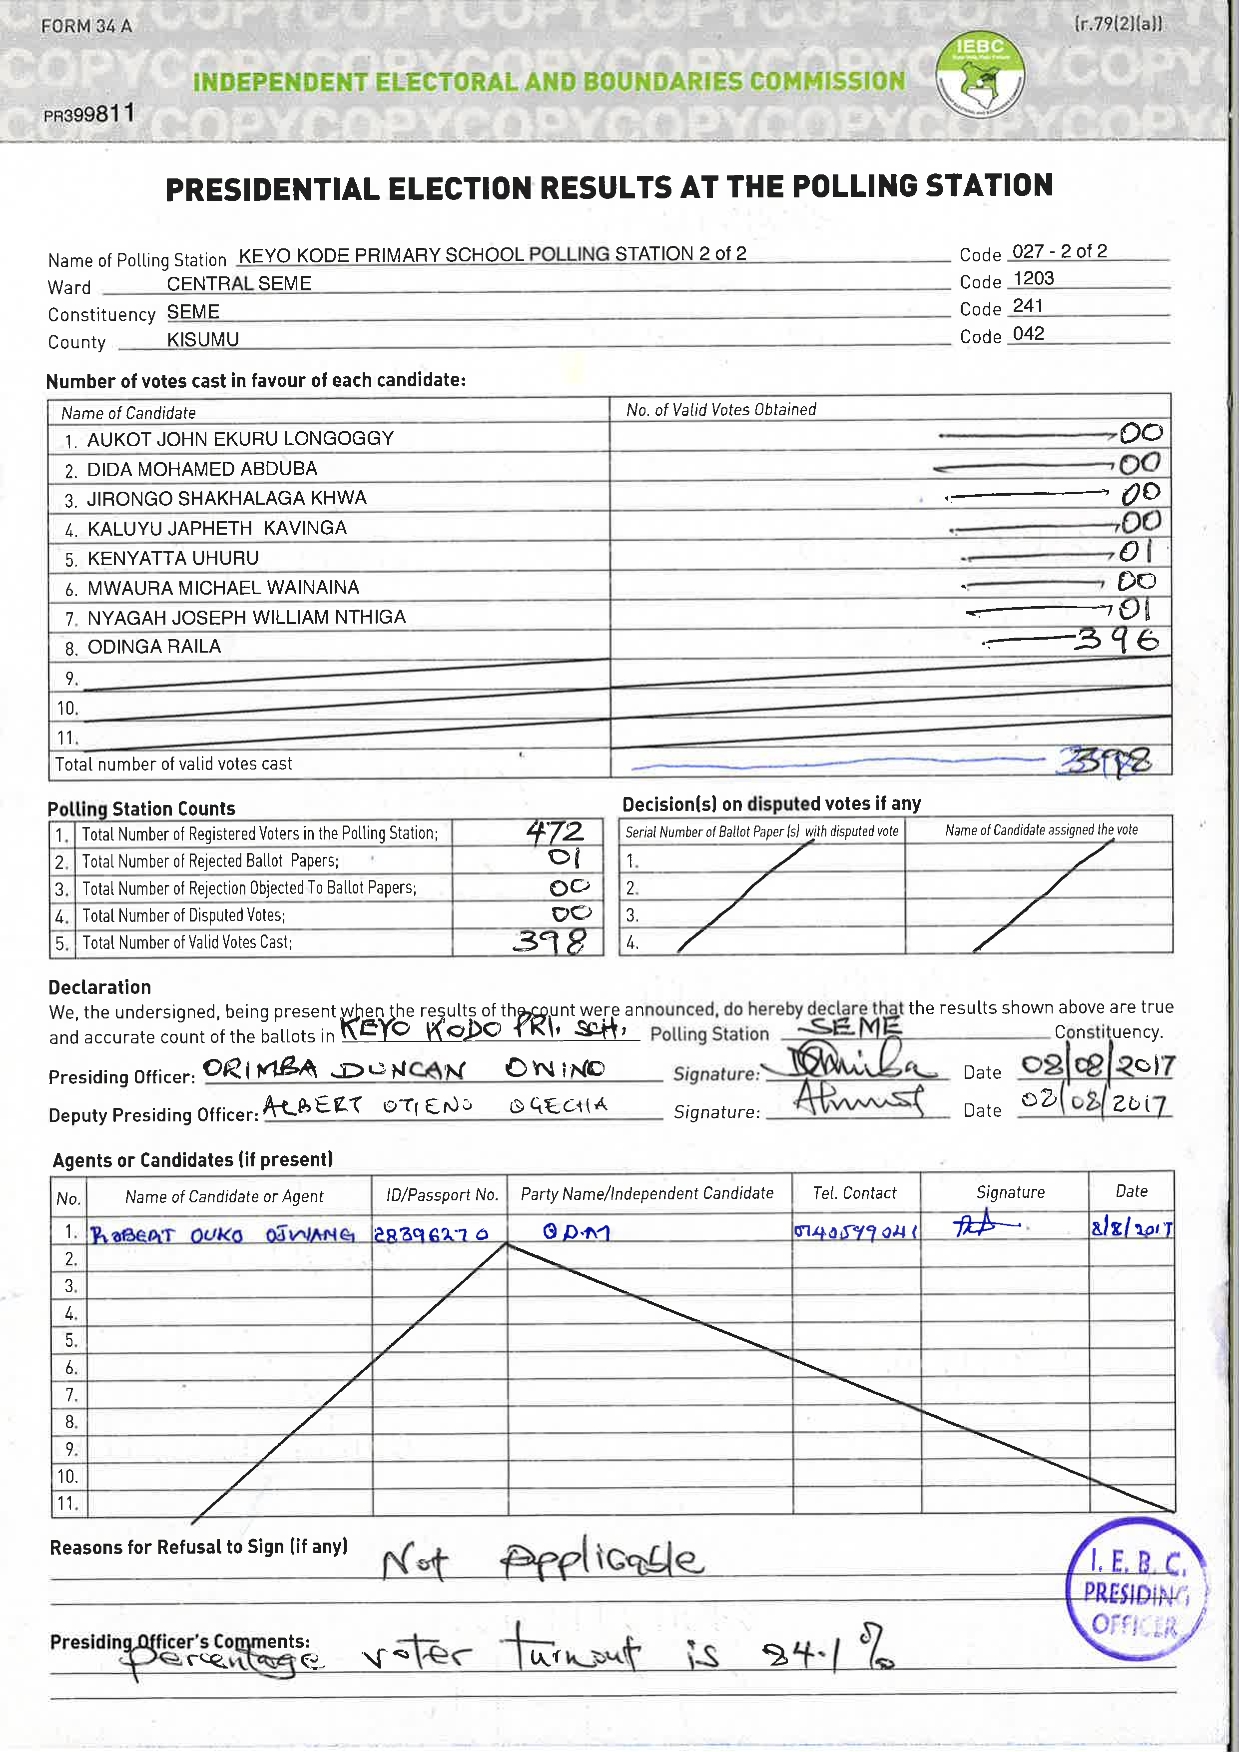 FORM 34 A
(r.79(2)(a))
IEBC
INDEPENDENT ELECTORAL AND BOUNDARIES COMMISSION
PR399811
PRESIDENTIAL ELECTION RESULTS AT THE POLLING STATION
Name of Polling Station KEYO KODE PRIMARY SCHOOL POLLING STATION 2 of 2 Code 027 - 2 of 2
Ward CENTRAL SEME Code 1203
Constituency SEME Code 241
County KISUMU Code 042
Number of votes cast in favour of each candidate:
Name of Candidate No. of Valid Votes Obtained
1. AUKOT JOHN EKURU LONGOGGY 00
2. DIDA MOHAMED ABDUBA 00
3. JIRONGO SHAKHALAGA KHWA 00
4. KALUYU JAPHETH KAVINGA 00
5. KENYATTA UHURU 01
6. MWAURA MICHAEL WAINAINA 00
7. NYAGAH JOSEPH WILLIAM NTHIGA 01
8. ODINGA RAILA 396
9.
10.
11.
Total number of valid votes cast 398
Polling Station Counts
1. Total Number of Registered Voters in the Polling Station; 472
2. Total Number of Rejected Ballot Papers; 01
3. Total Number of Rejection Objected To Ballot Papers; 00
4. Total Number of Disputed Votes; 00
5. Total Number of Valid Votes Cast; 398
Decision(s) on disputed votes if any
Serial Number of Ballot Paper (s) with disputed vote Name of Candidate assigned the vote
1.
2.
3.
4.
Declaration
We, the undersigned, being present when the results of the count were announced, do hereby declare that the results shown above are true
and accurate count of the ballots in KEYO KODO PRI. SCH, Polling Station SEME Constituency.
Presiding Officer: ORIMBA DUNCAN OWINO Signature: Date 08/08/2017
Deputy Presiding Officer: ALBERT OTIENO OGECHA Signature: Date 02/08/2017
Agents or Candidates (if present)
No. Name of Candidate or Agent ID/Passport No. Party Name/Independent Candidate Tel. Contact Signature Date
1. ROBERT OUKO OJWANG 28396270 ODM 0740599041 8/8/2017
2.
3.
4.
5.
6.
7.
8.
9.
10.
11.
Reasons for Refusal to Sign (if any) Not Applicable
I.E.B.C.
PRESIDING
OFFICER
Presiding Officer's Comments:
percentage voter turnout is 84.1%